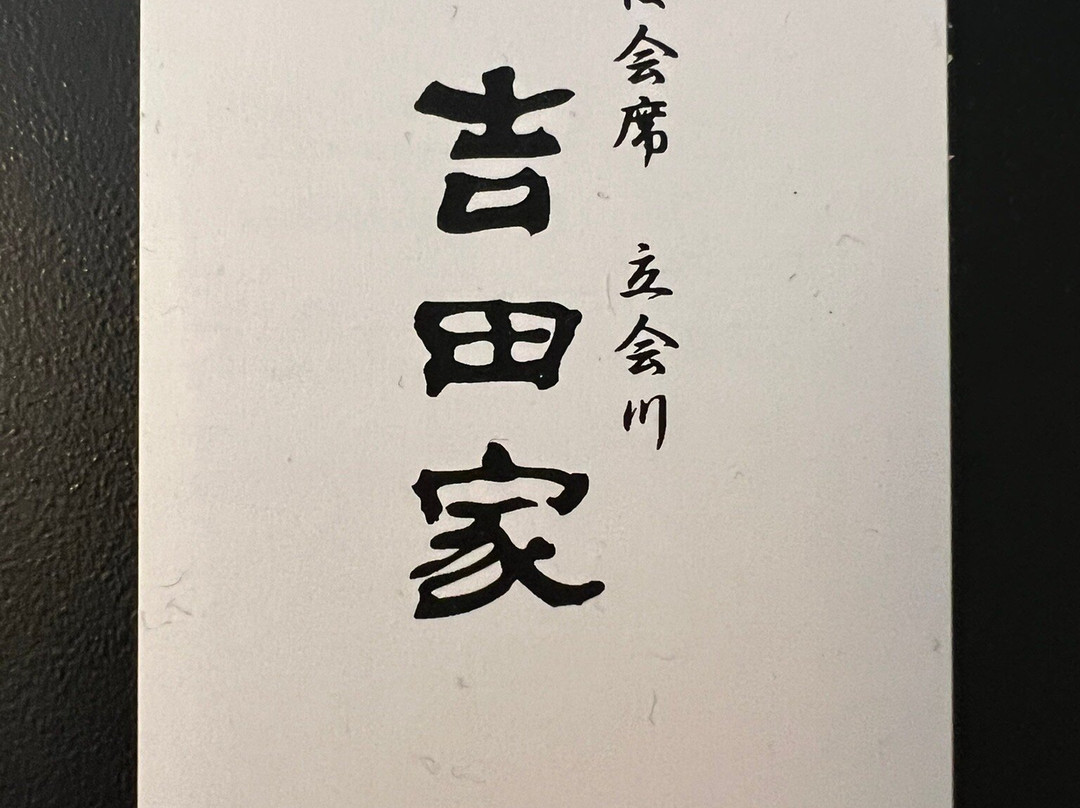 会席 立会川
吉田家